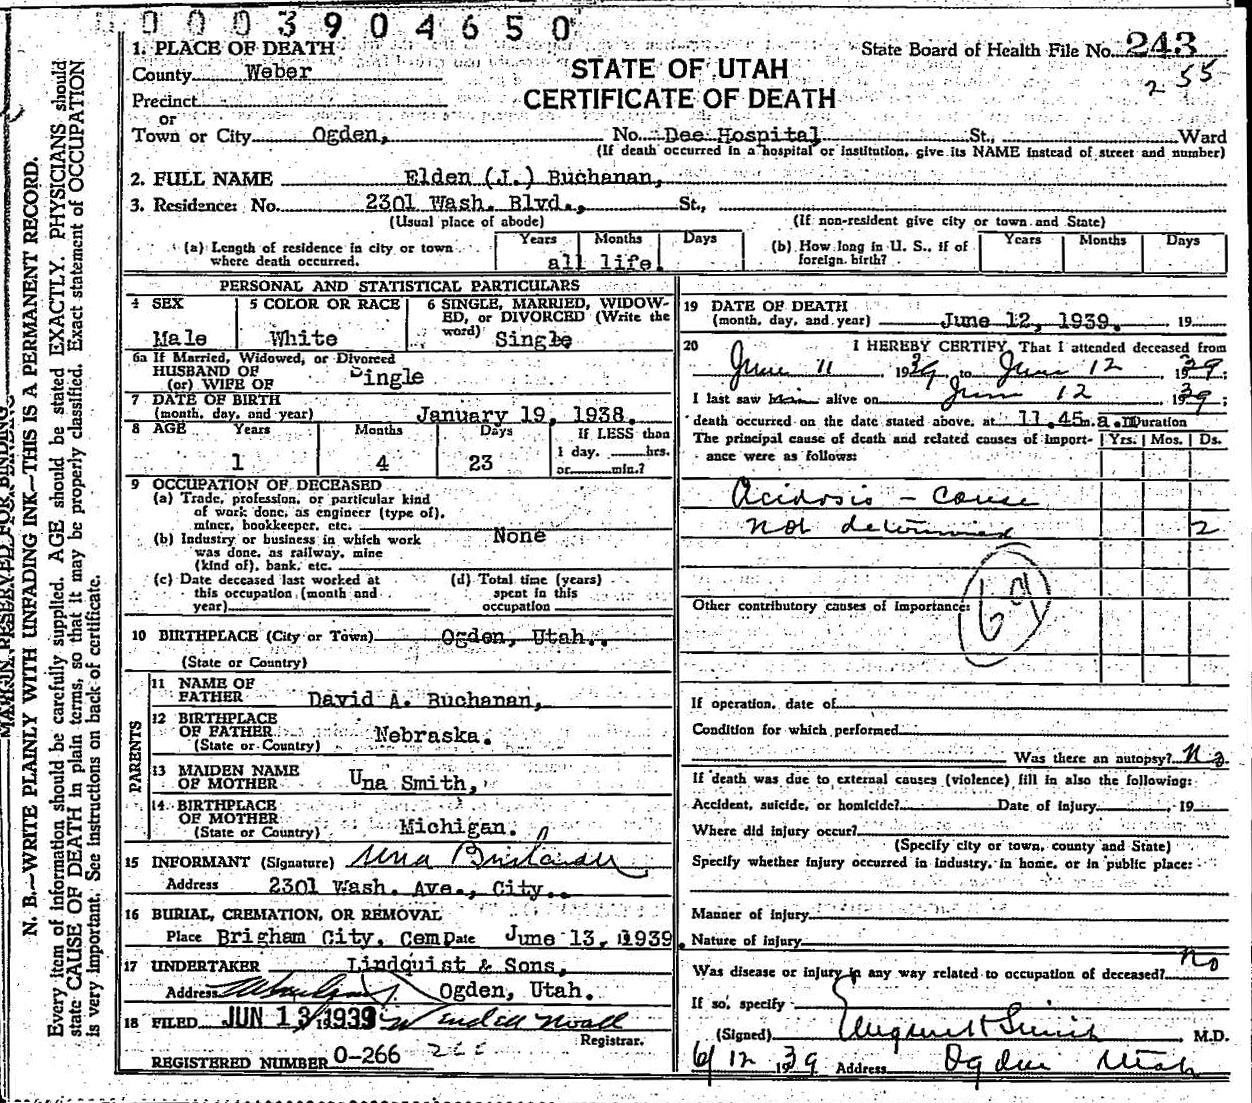 0003904650
State Board of Health File No. 243
255
STATE OF UTAH
CERTIFICATE OF DEATH
1. PLACE OF DEATH
County Weber
Precinct
or
Town or City Ogden, No. Dee Hospital St., Ward
(If death occurred in a hospital or institution, give its NAME instead of street and number)
2. FULL NAME Elden (J.) Buchanan,
3. Residence: No. 2301 Wash. Blvd., St.,
(Usual place of abode) (If non-resident give city or town and State)
(a) Length of residence in city or town where death occurred. Years Months Days
all life.
(b) How long in U. S., if of foreign birth? Years Months Days
PERSONAL AND STATISTICAL PARTICULARS
4 SEX
Male
5 COLOR OR RACE
White
6 SINGLE, MARRIED, WIDOW-
ED, or DIVORCED (Write the
word) Single
6a If Married, Widowed, or Divorced
HUSBAND OF
(or) WIFE OF Single
7 DATE OF BIRTH
(month, day, and year) January 19, 1938.
8 AGE Years Months Days If LESS than
1 day, hrs.
1 4 23 or min.?
9 OCCUPATION OF DECEASED
(a) Trade, profession, or particular kind
of work done, as engineer (type of),
miner, bookkeeper, etc.
(b) Industry or business in which work None
was done, as railway, mine
(kind of), bank, etc.
(c) Date deceased last worked at
this occupation (month and
year)
(d) Total time (years)
spent in this
occupation
10 BIRTHPLACE (City or Town) Ogden, Utah..
(State or Country)
PARENTS
11 NAME OF
FATHER David A. Buchanan,
12 BIRTHPLACE
OF FATHER Nebraska.
(State or Country)
13 MAIDEN NAME
OF MOTHER Una Smith,
14 BIRTHPLACE
OF MOTHER
(State or Country) Michigan.
15 INFORMANT (Signature) Una Buchanan
Address 2301 Wash. Ave., City..
16 BURIAL, CREMATION, OR REMOVAL
Place Brigham City, Cem Date June 13, 1939
17 UNDERTAKER Lindquist & Sons,
Address Ogden, Utah.
18 FILED JUN 13 1939
Registrar.
REGISTERED NUMBER 0-266 266
19 DATE OF DEATH
(month, day, and year) June 12, 1939. 19
20 I HEREBY CERTIFY, That I attended deceased from
June 11 1939 to June 12 1939;
I last saw him alive on June 12 1939;
death occurred on the date stated above, at 11.45 m. a.m Duration
The principal cause of death and related causes of import-
ance were as follows: Yrs. Mos. Ds.
Acidosis - cause
not determined 2
69
Other contributory causes of importance:
If operation, date of
Condition for which performed
Was there an autopsy? No
If death was due to external causes (violence) fill in also the following:
Accident, suicide, or homicide? Date of injury , 19
Where did injury occur?
(Specify city or town, county and State)
Specify whether injury occurred in industry, in home, or in public place:
Manner of injury
Nature of injury
Was disease or injury in any way related to occupation of deceased? No
If so, specify
(Signed) M.D.
6/12 1939 Address Ogden Utah
MARGIN RESERVED FOR BINDING
N. B.—WRITE PLAINLY WITH UNFADING INK—THIS IS A PERMANENT RECORD.
Every item of information should be carefully supplied. AGE should be stated EXACTLY. PHYSICIANS should
state CAUSE OF DEATH in plain terms, so that it may be properly classified. Exact statement of OCCUPATION
is very important. See instructions on back of certificate.